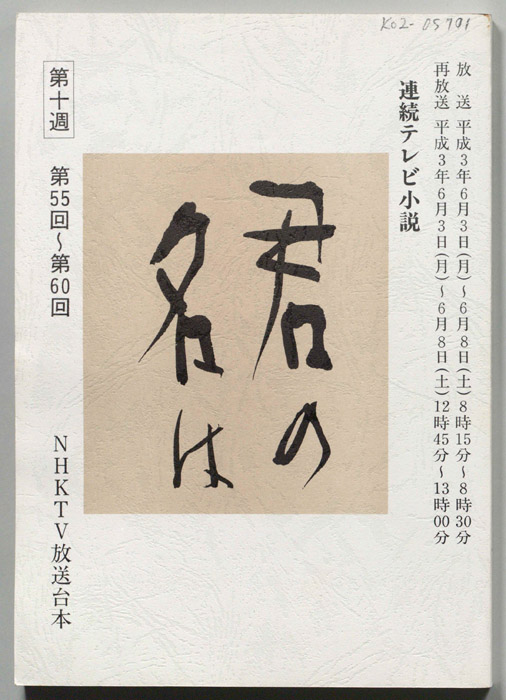 K02-05701
放送 平成3年6月3日(月)〜6月8日(土)8時15分〜8時30分
再放送 平成3年6月3日(月)〜6月8日(土)12時45分〜13時00分
連続テレビ小説
君の
名は
第十週
第55回〜第60回
NHKTV放送台本